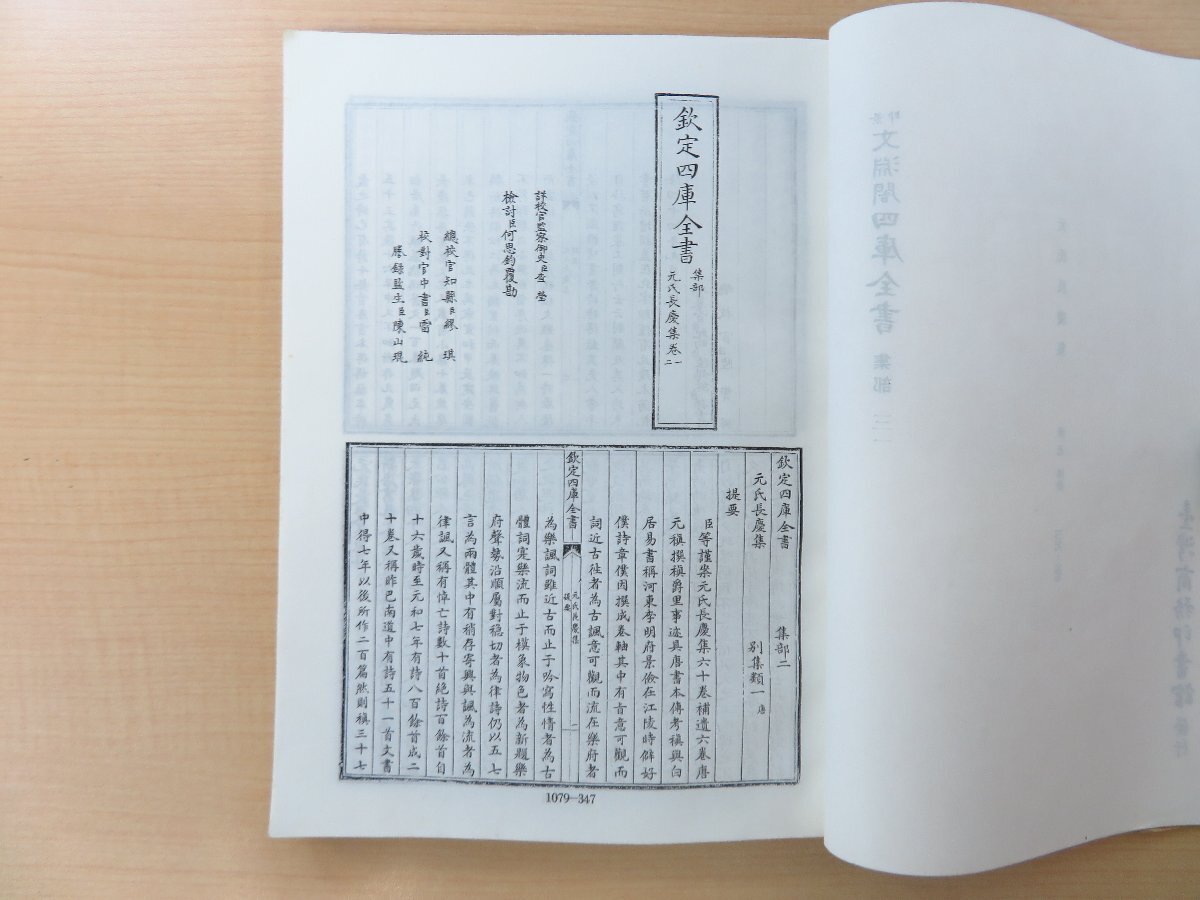 欽定四庫全書
集部
元氏長慶集卷一
二
詳校官監察御史臣查瑩
檢討臣何思鈞覆勘
總校官知縣臣繆琪
校對官中書臣雷純
謄錄監生臣陳山琨
欽定四庫全書 集部二
元氏長慶集 別集類一唐
提要
臣等謹案元氏長慶集六十卷補遺六卷唐
元稹撰稹爵里事迹具唐書本傳考稹與白
居易書稱河東李明府景儉在江陵時僻好
僕詩章僕因撰成卷軸其中有旨意可觀而
詞近古往者為古諷意可觀而流在樂府者
欽定四庫全書
元氏長慶集
提要
一
為樂諷詞雖近古而止于吟寫性情者為古
體詞寔樂流而止于模象物色者為新題樂
府聲勢沿順屬對穩切者為律詩仍以五七
言為兩體其中有稍存寄興與諷為流者為
律諷又稱有悼亡詩數十首絕詩百餘首自
十六歲時至元和七年有詩八百餘首成二
十卷又稱昨巴南道中有詩五十一首文書
中得七年以後所作二百篇然則稹三十七
1079—347
景印
文淵閣四庫全書
集部
三一
臺灣商務印書館發行